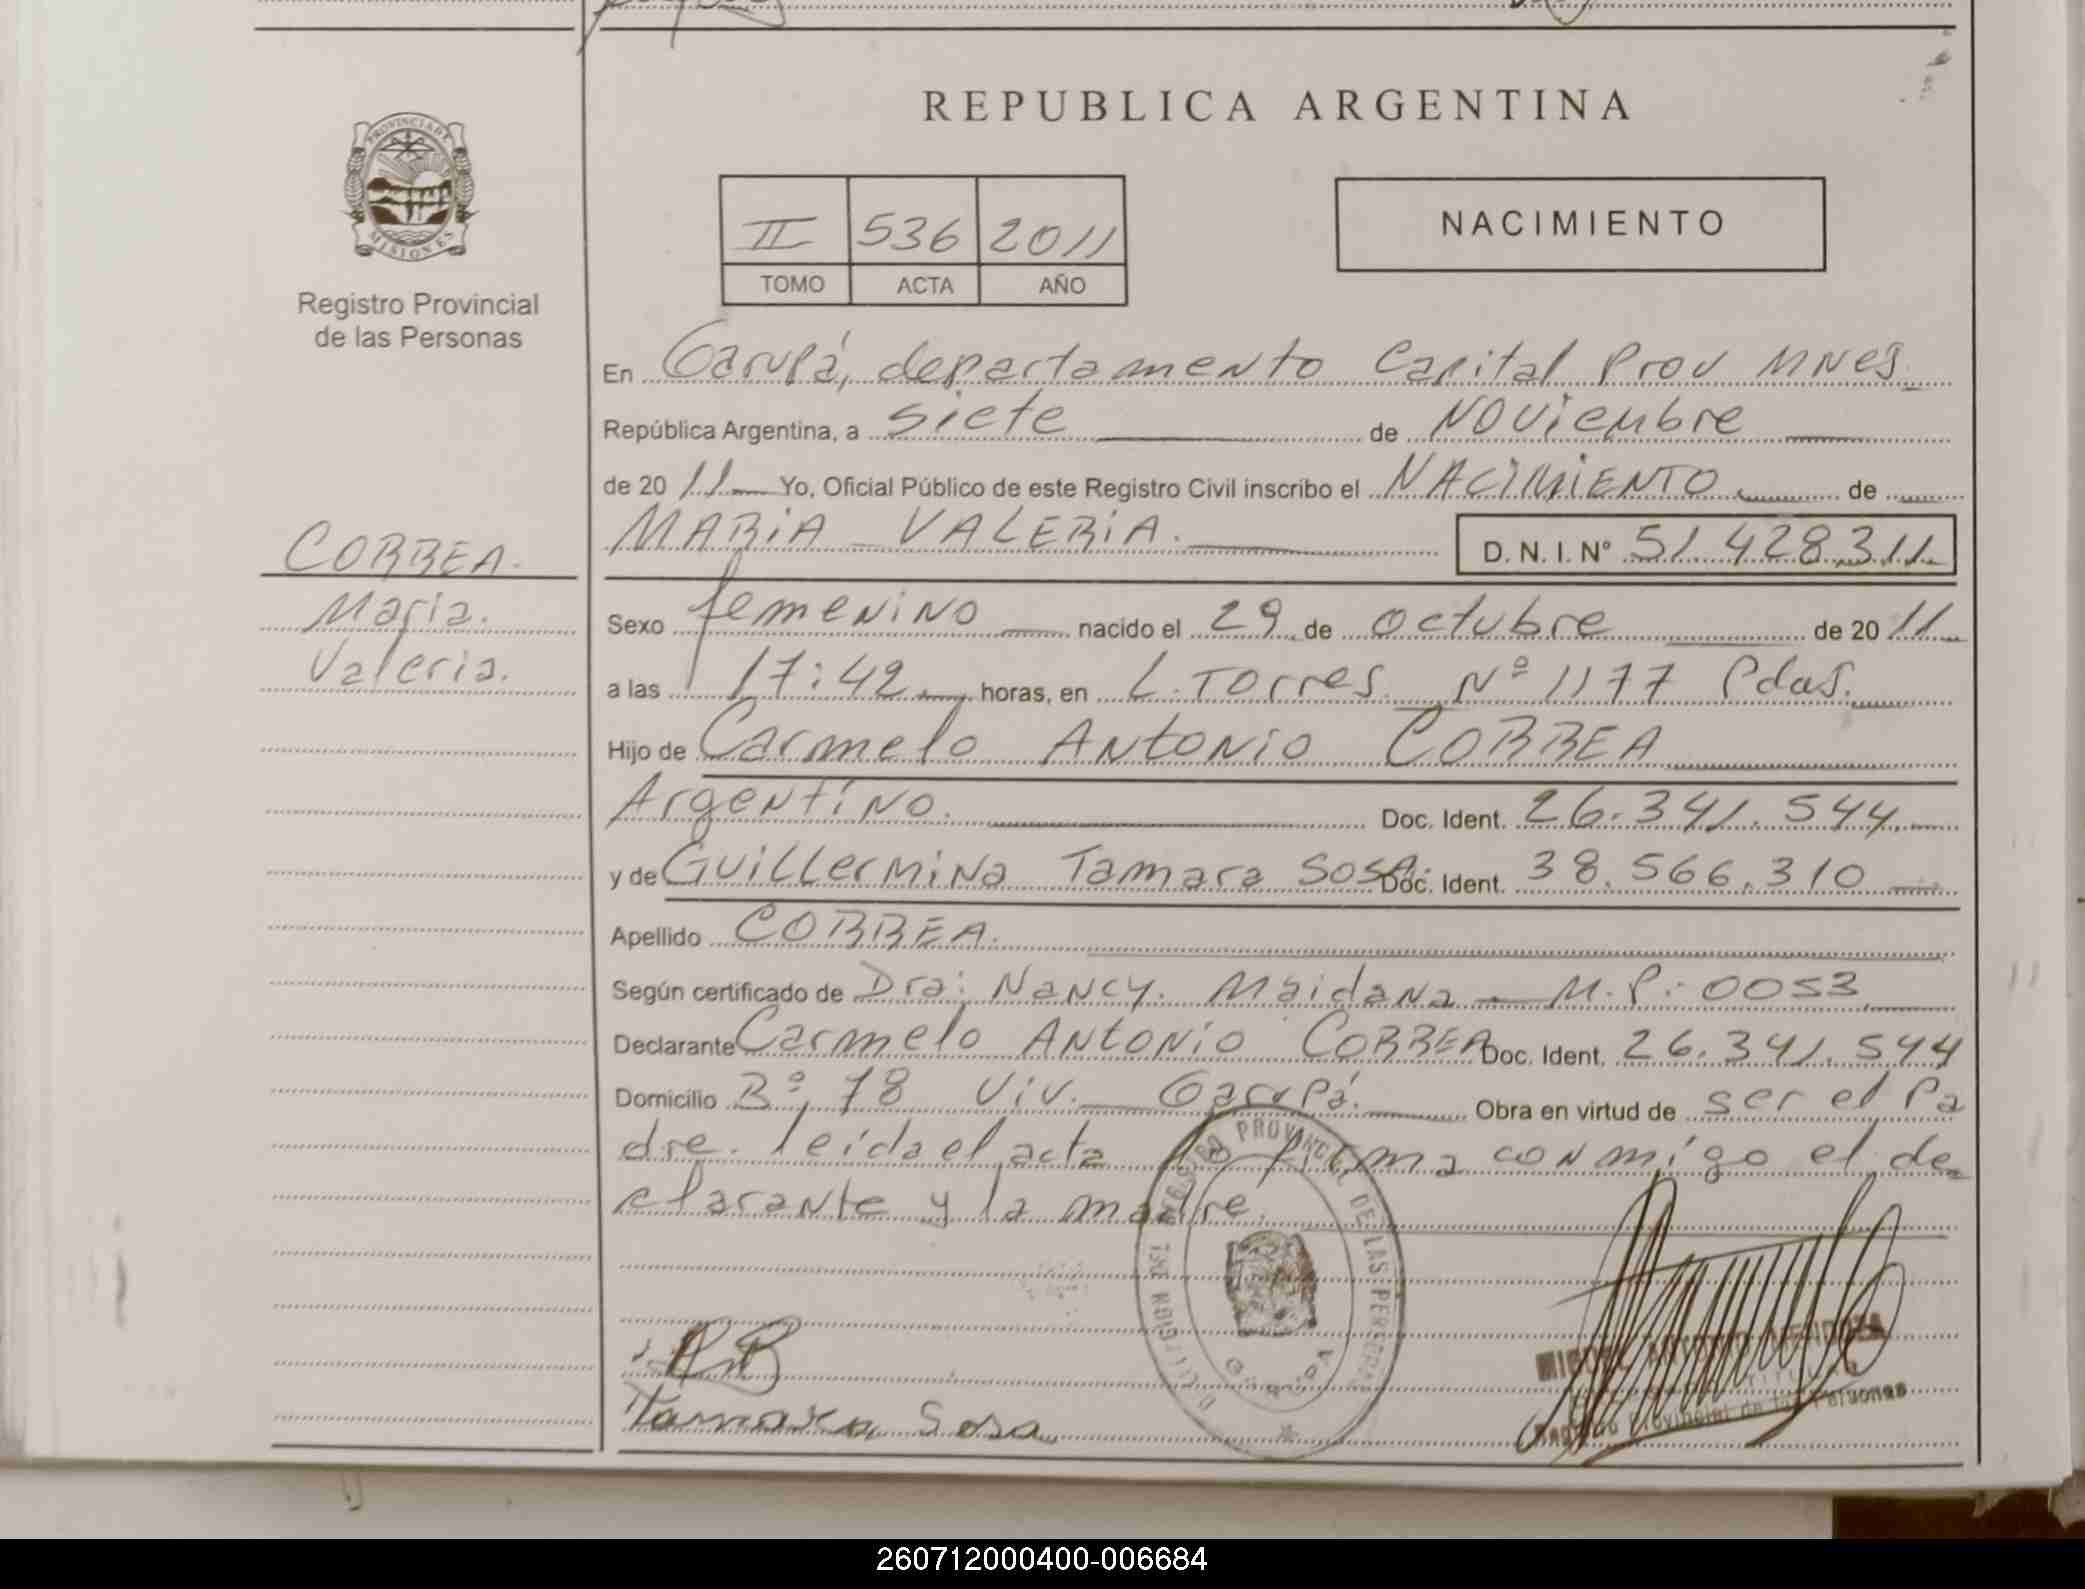 REPUBLICA ARGENTINA
PROVINCIA DE
MISIONES
Registro Provincial
de las Personas
II 536 2011
TOMO ACTA AÑO
NACIMIENTO
En Garupá, departamento Capital Prov MNes.
República Argentina, a siete de Noviembre
de 2011 Yo, Oficial Público de este Registro Civil inscribo el NACIMIENTO de
MARIA VALERIA. D. N. I. Nº 51.428.311
CORREA.
Maria.
Valeria.
Sexo femenino nacido el 29 de octubre de 2011
a las 17:42 horas, en L. Torres. Nº 1177 Pdas.
Hijo de Carmelo Antonio CORREA
Argentino. Doc. Ident. 26.341.544
y de Guillermina Tamara SOSA. Doc. Ident. 38.566.310
Apellido CORREA.
Según certificado de Dra: Nancy. Maidana - M.P.: 0053
Declarante Carmelo Antonio CORREA Doc. Ident. 26.341.544
Domicilio Bº, 78 Viv. Garupá. Obra en virtud de ser el Pa
dre. leida el acta firma conmigo el de
clarante y la madre.
REGISTRO PROVINCIAL DE LAS PERSONAS
Tamara Sosa
MIGUEL ANTONIO MENDOZA
Registro Provincial de las Personas
260712000400-006684